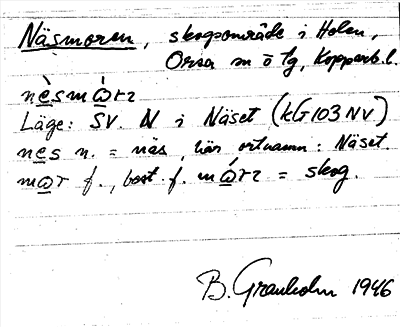 Näsmoren, skogsområde i Holen,
Orsa sn o tg, Kopparb. l.
nèsmòrı
Läge: SV. N i Näset (kG103NV)
nes n. = näs, här ortnamn: Näset
mor f., best. f. mórı = skog.
B. Granholm 1946